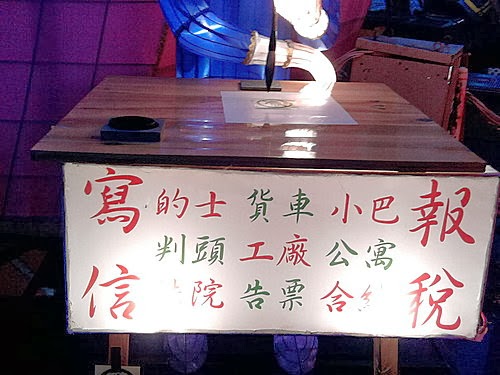 寫信
的士 貨車 小巴
判頭 工廠 公寓
法院 告票 合約
報稅